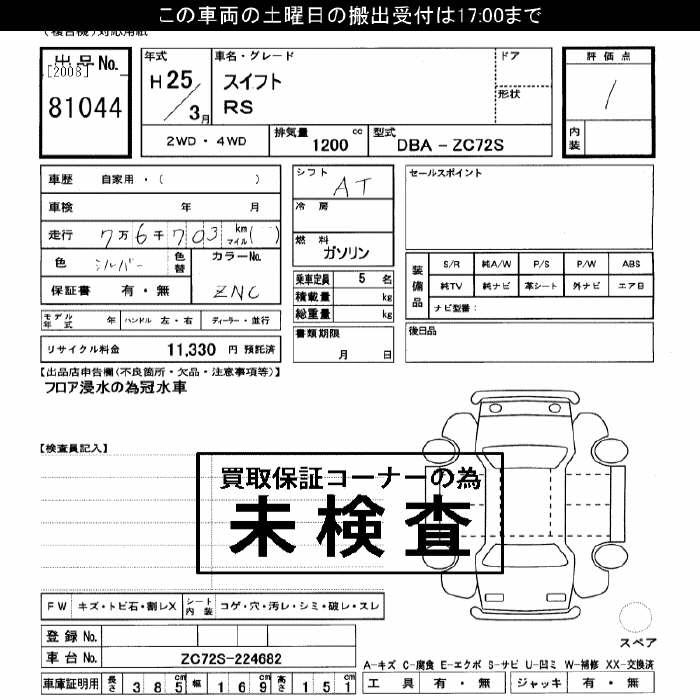 この車両の土曜日の搬出受付は17:00まで
出品No.
[2008]
81044
年式
H25/3月
車名・グレード
スイフト
RS
ドア
形状
評価点
1
内装
2WD・4WD
排気量 1200 cc
型式 DBA-ZC72S
車歴 自家用・( )
車検 年 月
走行 7万6千703 km マイル( )
色 シルバー 色替
カラーNo. ZNC
保証書 有・無
モデル年式 年 ハンドル 左・右 ディーラー・並行
リサイクル料金 11,330 円 預託済
シフト AT
冷房
燃料 ガソリン
乗車定員 5 名
積載量 kg
総重量 kg
書類期限 月 日
セールスポイント
装備品
S/R 純A/W P/S P/W ABS
純TV 純ナビ 革シート 外ナビ エアB
ナビ型番:
後日品
【出品店申告欄(不良箇所・欠品・注意事項等)】
フロア浸水の為冠水車
【検査員記入】
買取保証コーナーの為
未検査
FW キズ・トビ石・割レX シート内装 コゲ・穴・汚レ・シミ・破レ・スレ
登録No.
車台No. ZC72S-224682
車庫証明用 長さ 385cm 幅 169cm 高さ 151cm
スペア
A-キズ C-腐食 E-エクボ S-サビ U-凹ミ W-補修 XX-交換済
工具 有・無 ジャッキ 有・無